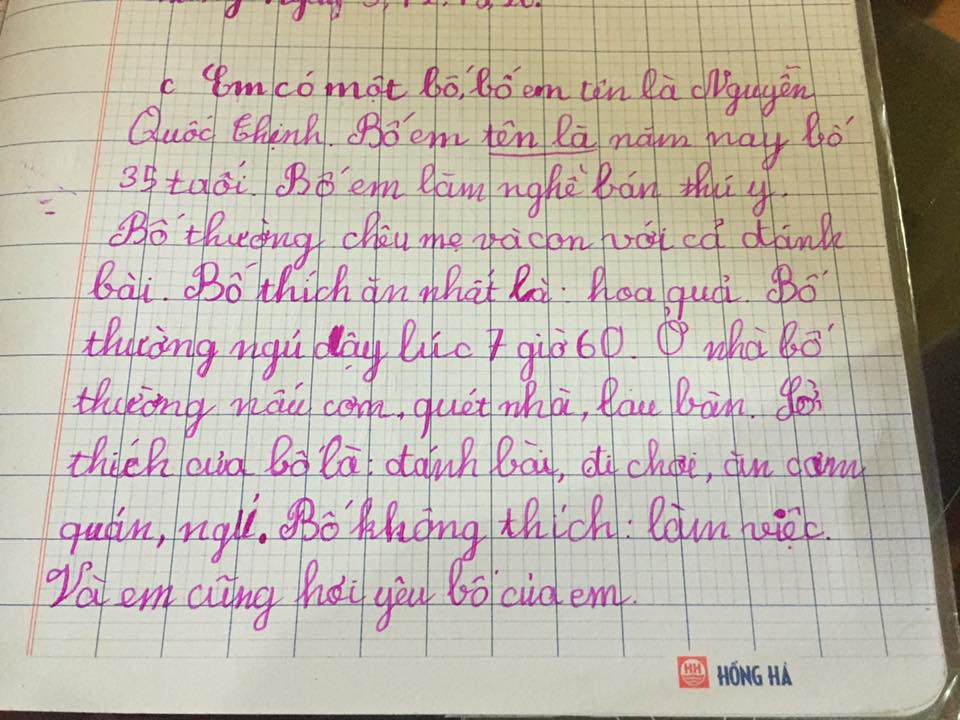 c Em có một bố, bố em tên là Nguyễn
Quốc Thịnh. Bố em tên là năm nay bố
35 tuổi. Bố em làm nghề bán thú y.
Bố thường chêu mẹ và con với cả đánh
bài. Bố thích ăn nhất là: hoa quả. Bố
thường ngủ dậy lúc 7 giờ 60. Ở nhà bố
thường nấu cơm, quét nhà, lau bàn. Sở
thích của bố là: đánh bài, đi chơi, ăn cơm
quán, ngủ. Bố không thích: làm việc.
Và em cũng hơi yêu bố của em.
HH HỒNG HÀ